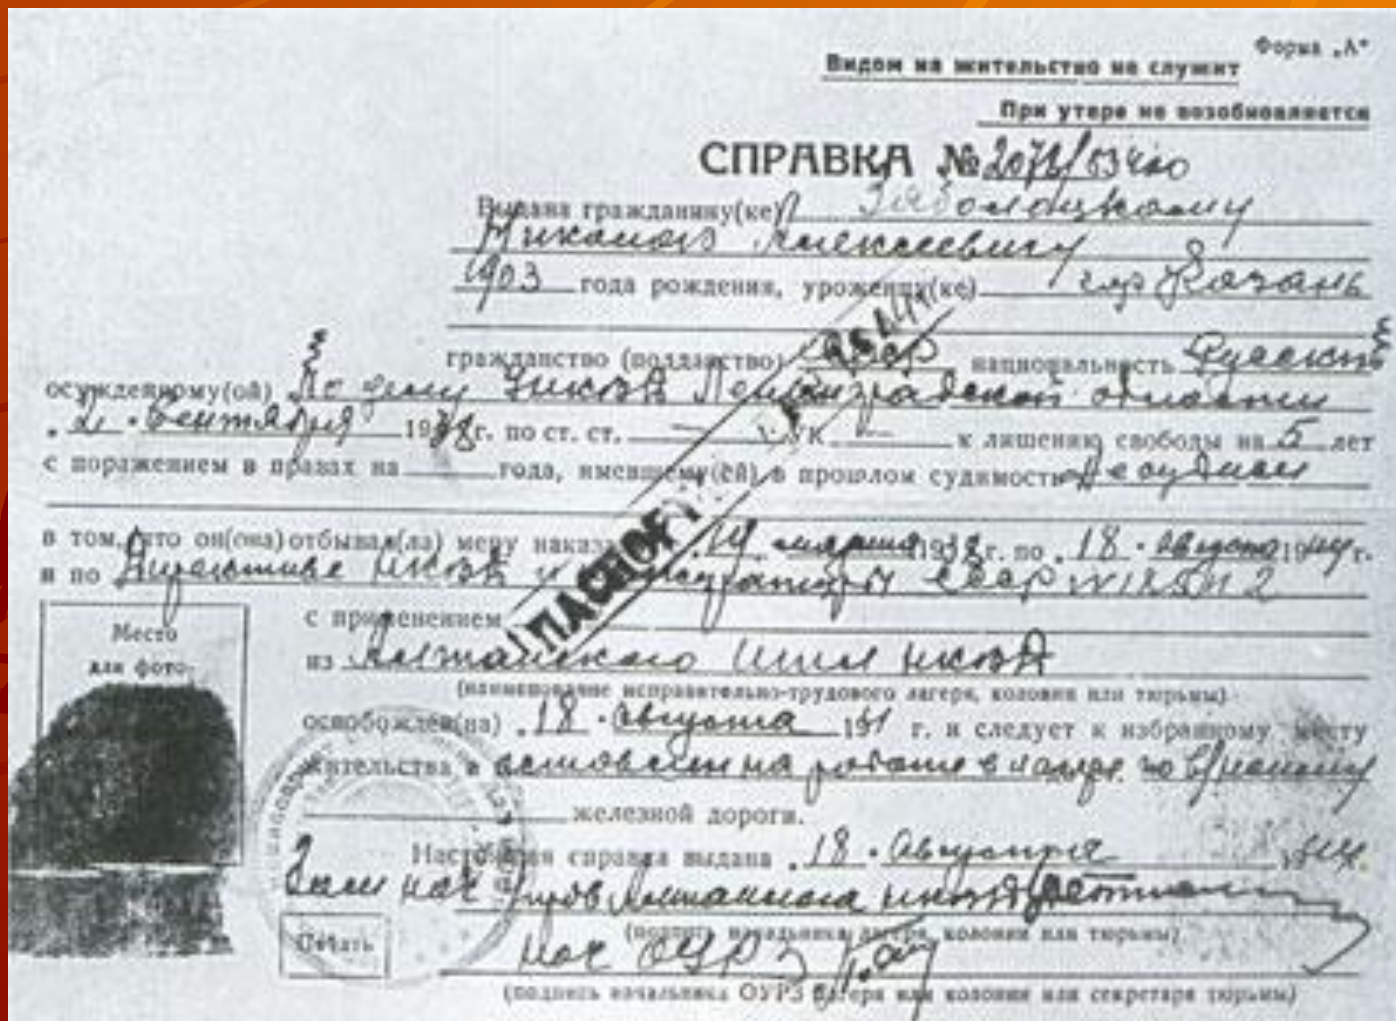 Форма „А"
Видом на жительство не служит
При утере не возобновляется
СПРАВКА №
Выдана гражданину(ке) Заболоцкому
Николаю Алексеевичу
1903 года рождения, уроженцу(ке) гор Казань
гражданство (подданство) СССР национальность Русский
осужденному(ой) По делу УНКВД Ленинградской области
„2" Сентября 1938 г. по ст. ст. — УК к лишению свободы на 5 лет
с поражением в правах на года, имевшему(ей) в прошлом судимость Не судим
в том, что он(она) отбывал(ла) меру наказа 19 марта 1938 г. по „18" августа 1944 г.
и по Директиве НКВД и Прокуратуры СССР №
Место
для фото-
с применением
ПАСПОРТ
из Алтайского НКВД
(наименование исправительно-трудового лагеря, колонии или тюрьмы)
освобожден(на) „18" Августа г. и следует к избранному месту
жительства в оставлен на работе в лагере по в/найму
железной дороги.
Настоящая справка выдана „18" Августа 1944.
нач Алтайского НКВД
(подпись начальника лагеря, колонии или тюрьмы)
Печать
Нач ОУРЗ
(подпись начальника ОУРЗ лагеря или колонии или секретаря тюрьмы)